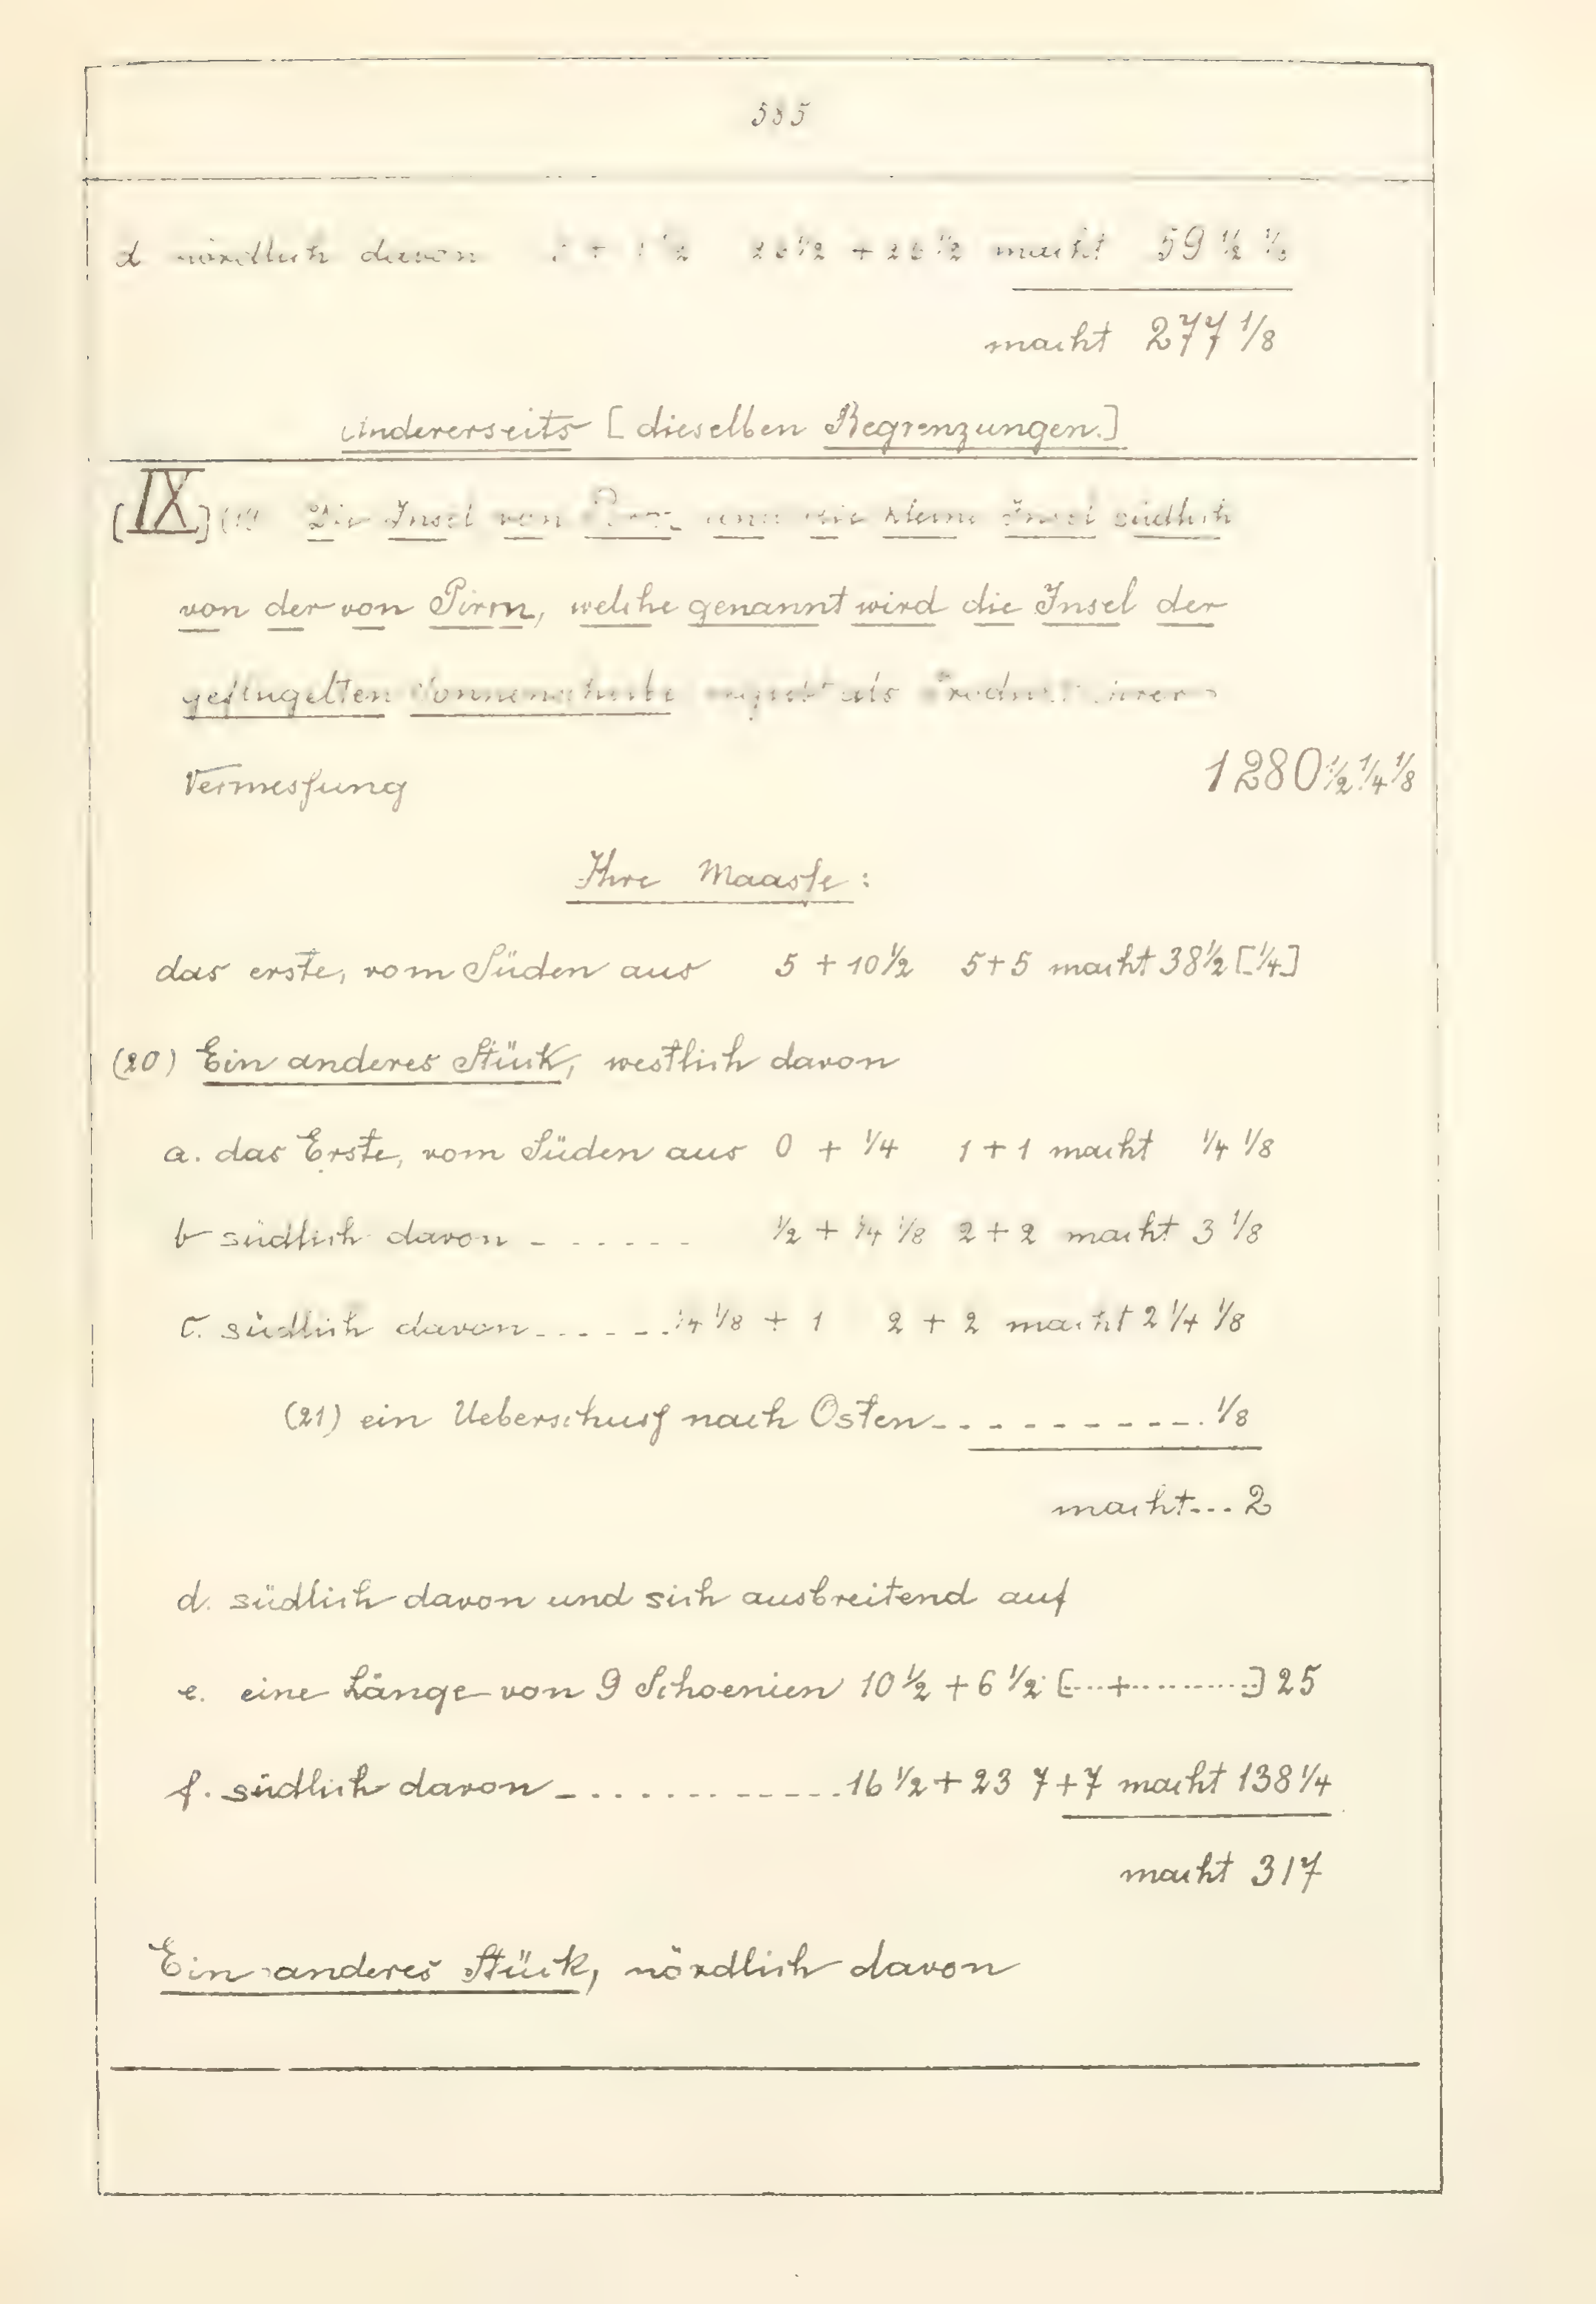 585
d nördlich davon 26½ + 26½ macht 59 ½
macht 277 1/8
Andererseits [dieselben Begrenzungen.]
[IX] Die Insel von und die kleine Insel südlich
von der von Pirm, welche genannt wird die Insel der
geflügelten Sonnenscheibe ergiebt als Product ihrer
Vermessung 1280 ½ ¼ 1/8
Ihre Maasse:
das erste, vom Süden aus 5 + 10½ 5+5 macht 38½ [¼]
(20) Ein anderes Stück, westlich davon
a. das Erste, vom Süden aus 0 + ¼ 1+1 macht ¼ 1/8
b südlich davon - - - - - - ½ + ¼ 1/8 2+2 macht 3 1/8
c. südlich davon - - - - - - ¼ 1/8 + 1 2 + 2 macht 2 ¼ 1/8
(21) ein Ueberschuss nach Osten - - - - - - - - - 1/8
macht... 2
d. südlich davon und sich ausbreitend auf
e. eine Länge von 9 Schoenien 10½ + 6½ [....+..........] 25
f. südlich davon - ............ 16½ + 23 7+7 macht 138¼
macht 317
Ein anderes Stück, nördlich davon